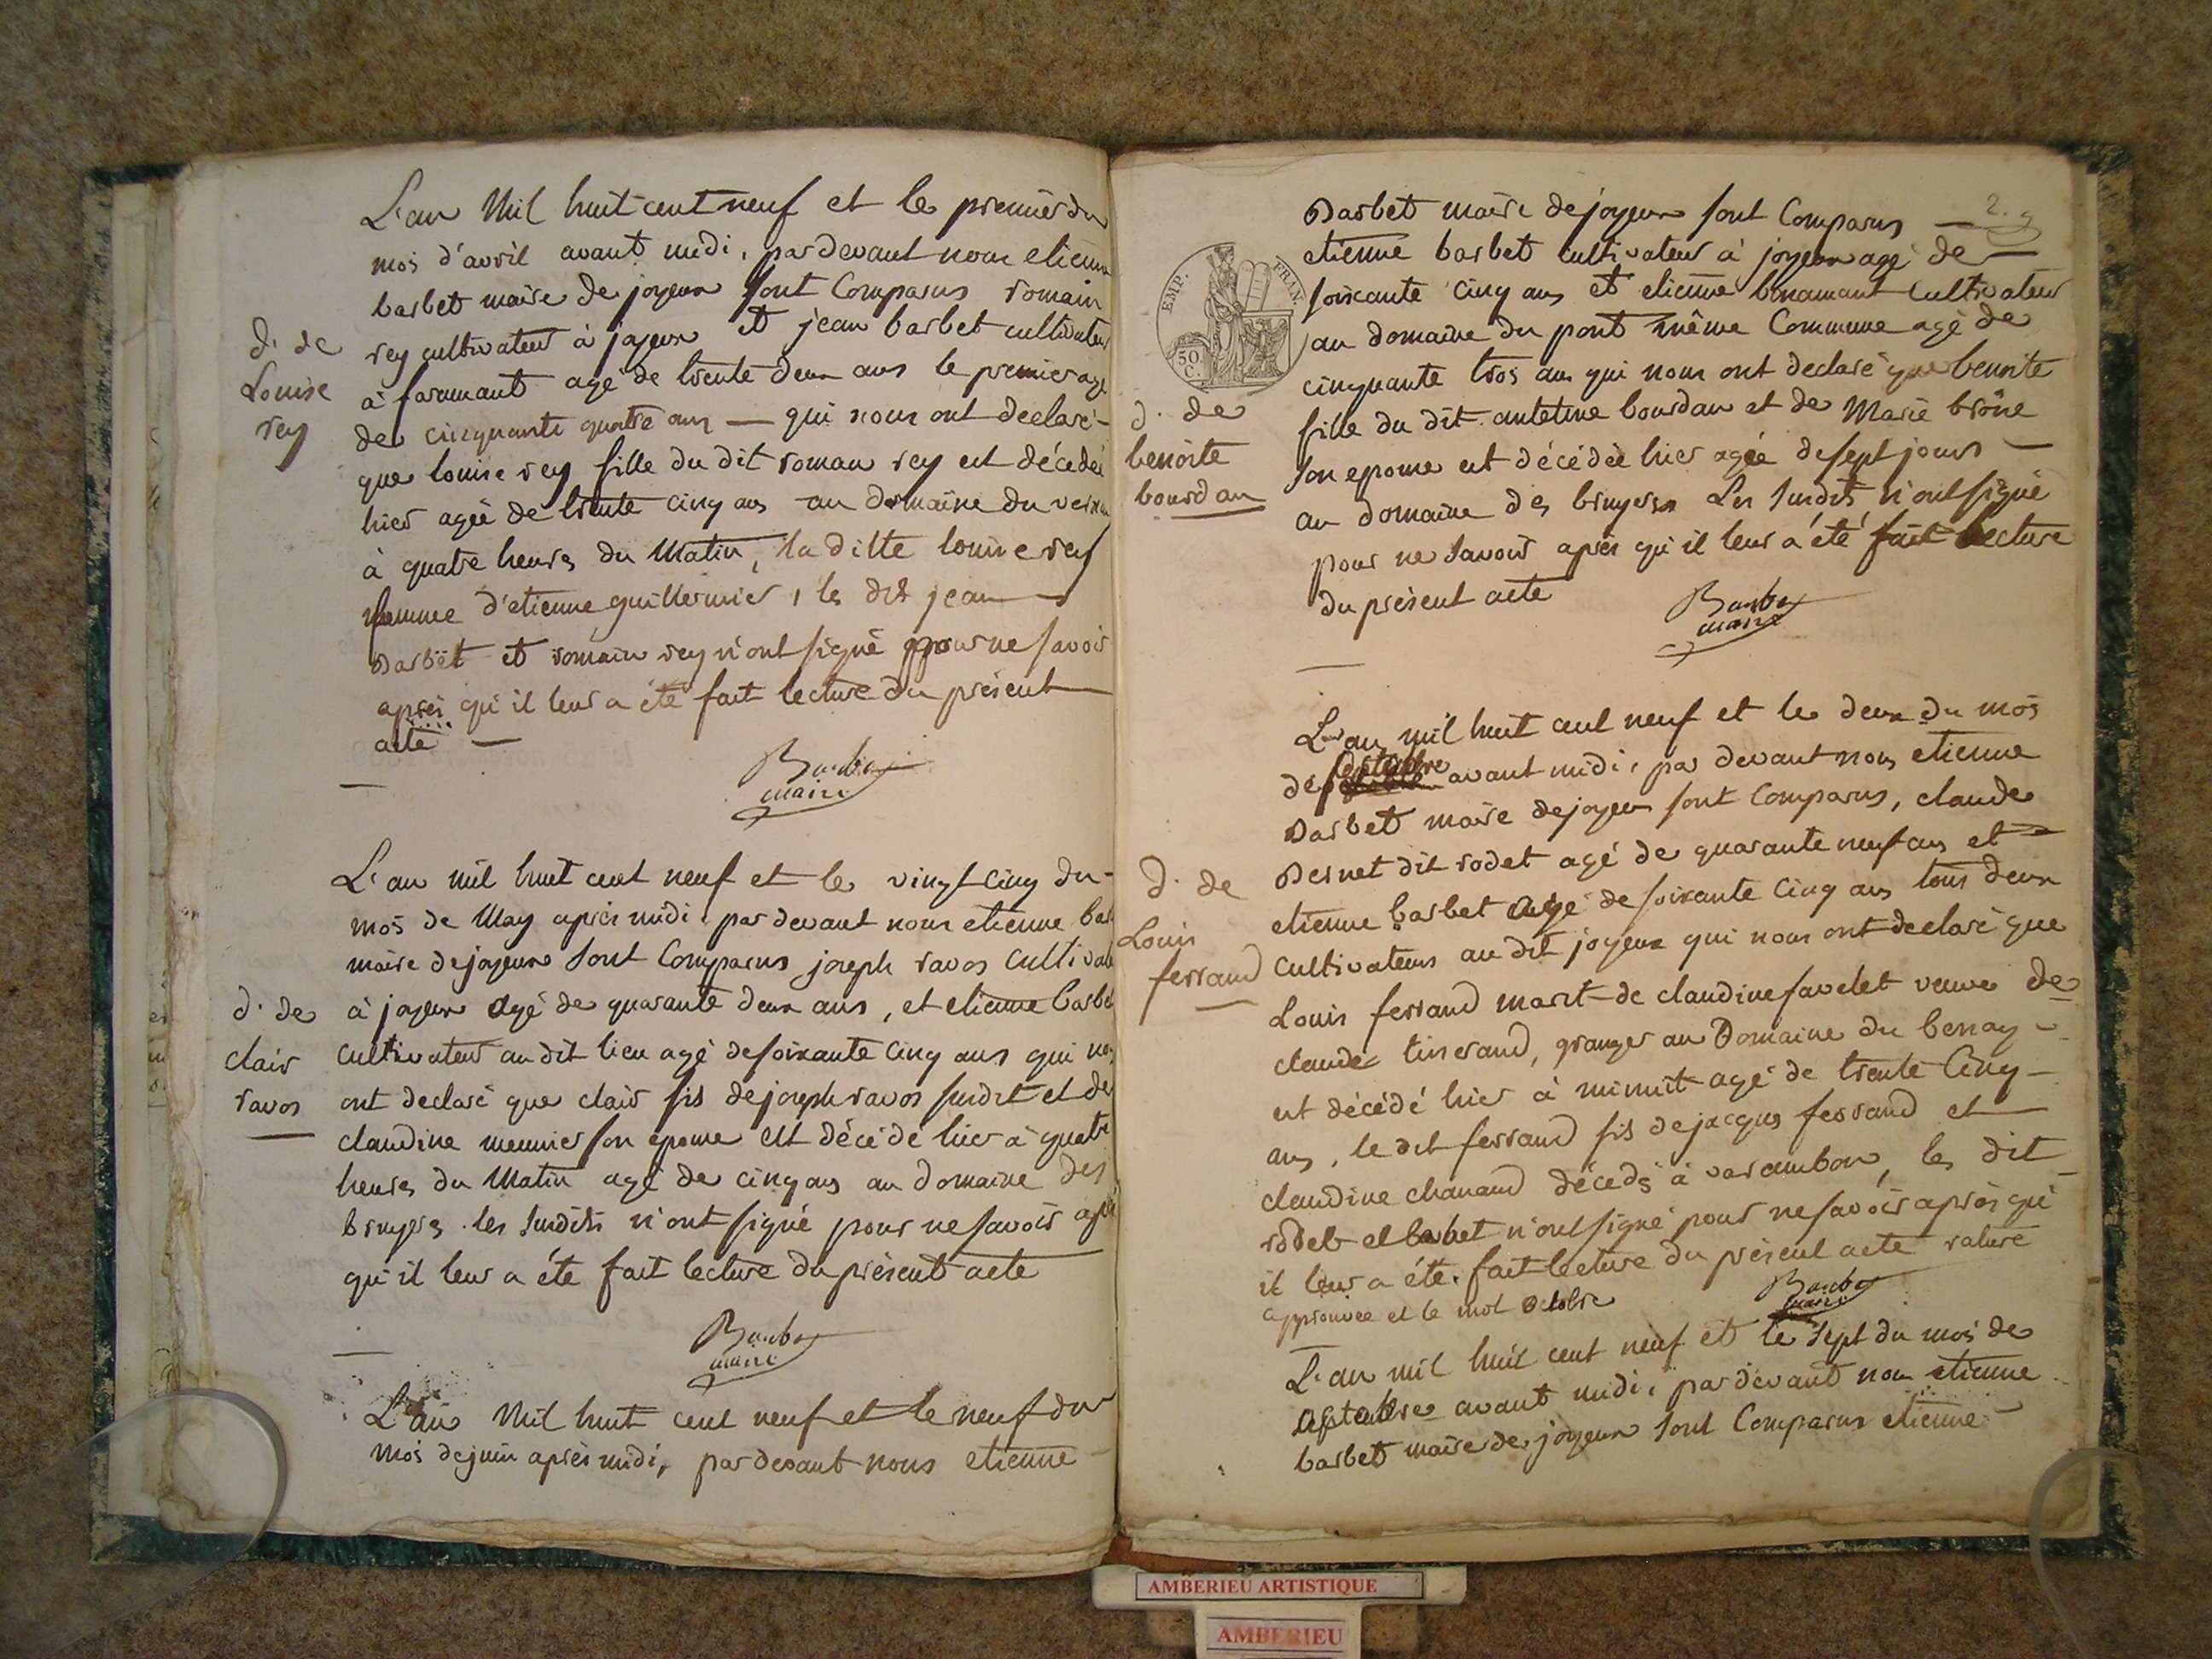 L'an Mil huit cent neuf et le premier du
mois d'avril avant midi, pardevant nous etienne
barbet maire de joyeux sont Comparus romain
rey cultivateur à joyeux et jean barbet cultivateur
à faramant agé de trente deux ans le premier agé
de cinquante quatre ans — qui nous ont declaré
que louise rey fille du dit romain rey est décédée
hier agée de trente cinq ans au domaine du
à quatre heures du Matin, la ditte louise rey
femme d'etienne guillermier, les dit jean
Barbet et romain rey n'ont signé pour ne savoir
après qu'il leur a été fait lecture du présent
acte —
Barbet
maire
d. de
Louise
rey
L'an mil huit cent neuf et le vingt cinq du
mois de May après midi, par devant nous etienne bar
maire de joyeux sont Comparus joseph ravos Cultivat
à joyeux agé de quarante deux ans, et etienne barbet
cultivateur au dit lieu agé de soixante cinq ans qui nous
ont declaré que clair fils de joseph ravos susdit et de
claudine meunier son epouse est décédé hier à quatre
heures du Matin agé de cinq ans au domaine des
bruyeres. les susdits n'ont signé pour ne savoir après
qu'il leur a été fait lecture du présent acte
Barbet
maire
d. de
clair
ravos
L'an Mil huit cent neuf et le neuf du
mois de juin après midi, pardevant nous etienne
2.
Barbet maire de joyeux sont Comparus
etienne barbet cultivateur à joyeux agé de
soixante cinq ans et etienne bonamant cultivateur
au domaine du pont même Commune agé de
cinquante trois ans qui nous ont declaré que benoite
fille du dit antelme bourdan et de Marie brône
son epouse est décédée hier agée de sept jours
au domaine des bruyeres Les susdits n'ont signé
pour ne savoir après qu'il leur a été fait lecture
du présent acte
Barbet
maire
EMP. FRAN.
50
C.
d. de
benoite
bourdan
L'an mil huit cent neuf et le deux du mois
de septembre avant midi, par devant nous etienne
Barbet maire de joyeux sont Comparus, claude
Bernet dit rodet agé de quarante neuf ans et
etienne barbet agé de soixante cinq ans tous deux
Cultivateurs au dit joyeux qui nous ont declaré que
Louis ferrand marit de claudine favelet veuve de
claude tisserand, granger au Domaine du benay
est décédé hier à minuit agé de trente Cinq
ans, le dit ferrand fils de jacques ferrand et
claudine chanand décedés à varambon, les dit
rodet et barbet n'ont signé pour ne savoir après qu'
il leur a été fait lecture du présent acte rature
approuvée et le mot octobre
Barbet
maire
d. de
Louis
ferrand
L'an mil huit cent neuf et le sept du mois de
septembre avant midi, pardevant nous etienne
barbet maire de joyeux sont Comparus etienne
AMBERIEU ARTISTIQUE
AMBERIEU